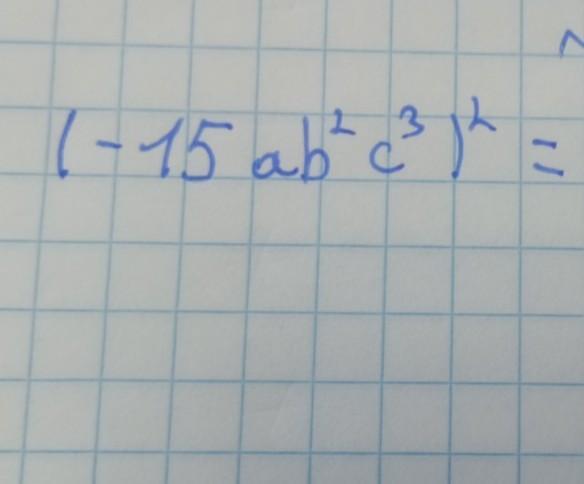 (-15ab²c³)² =